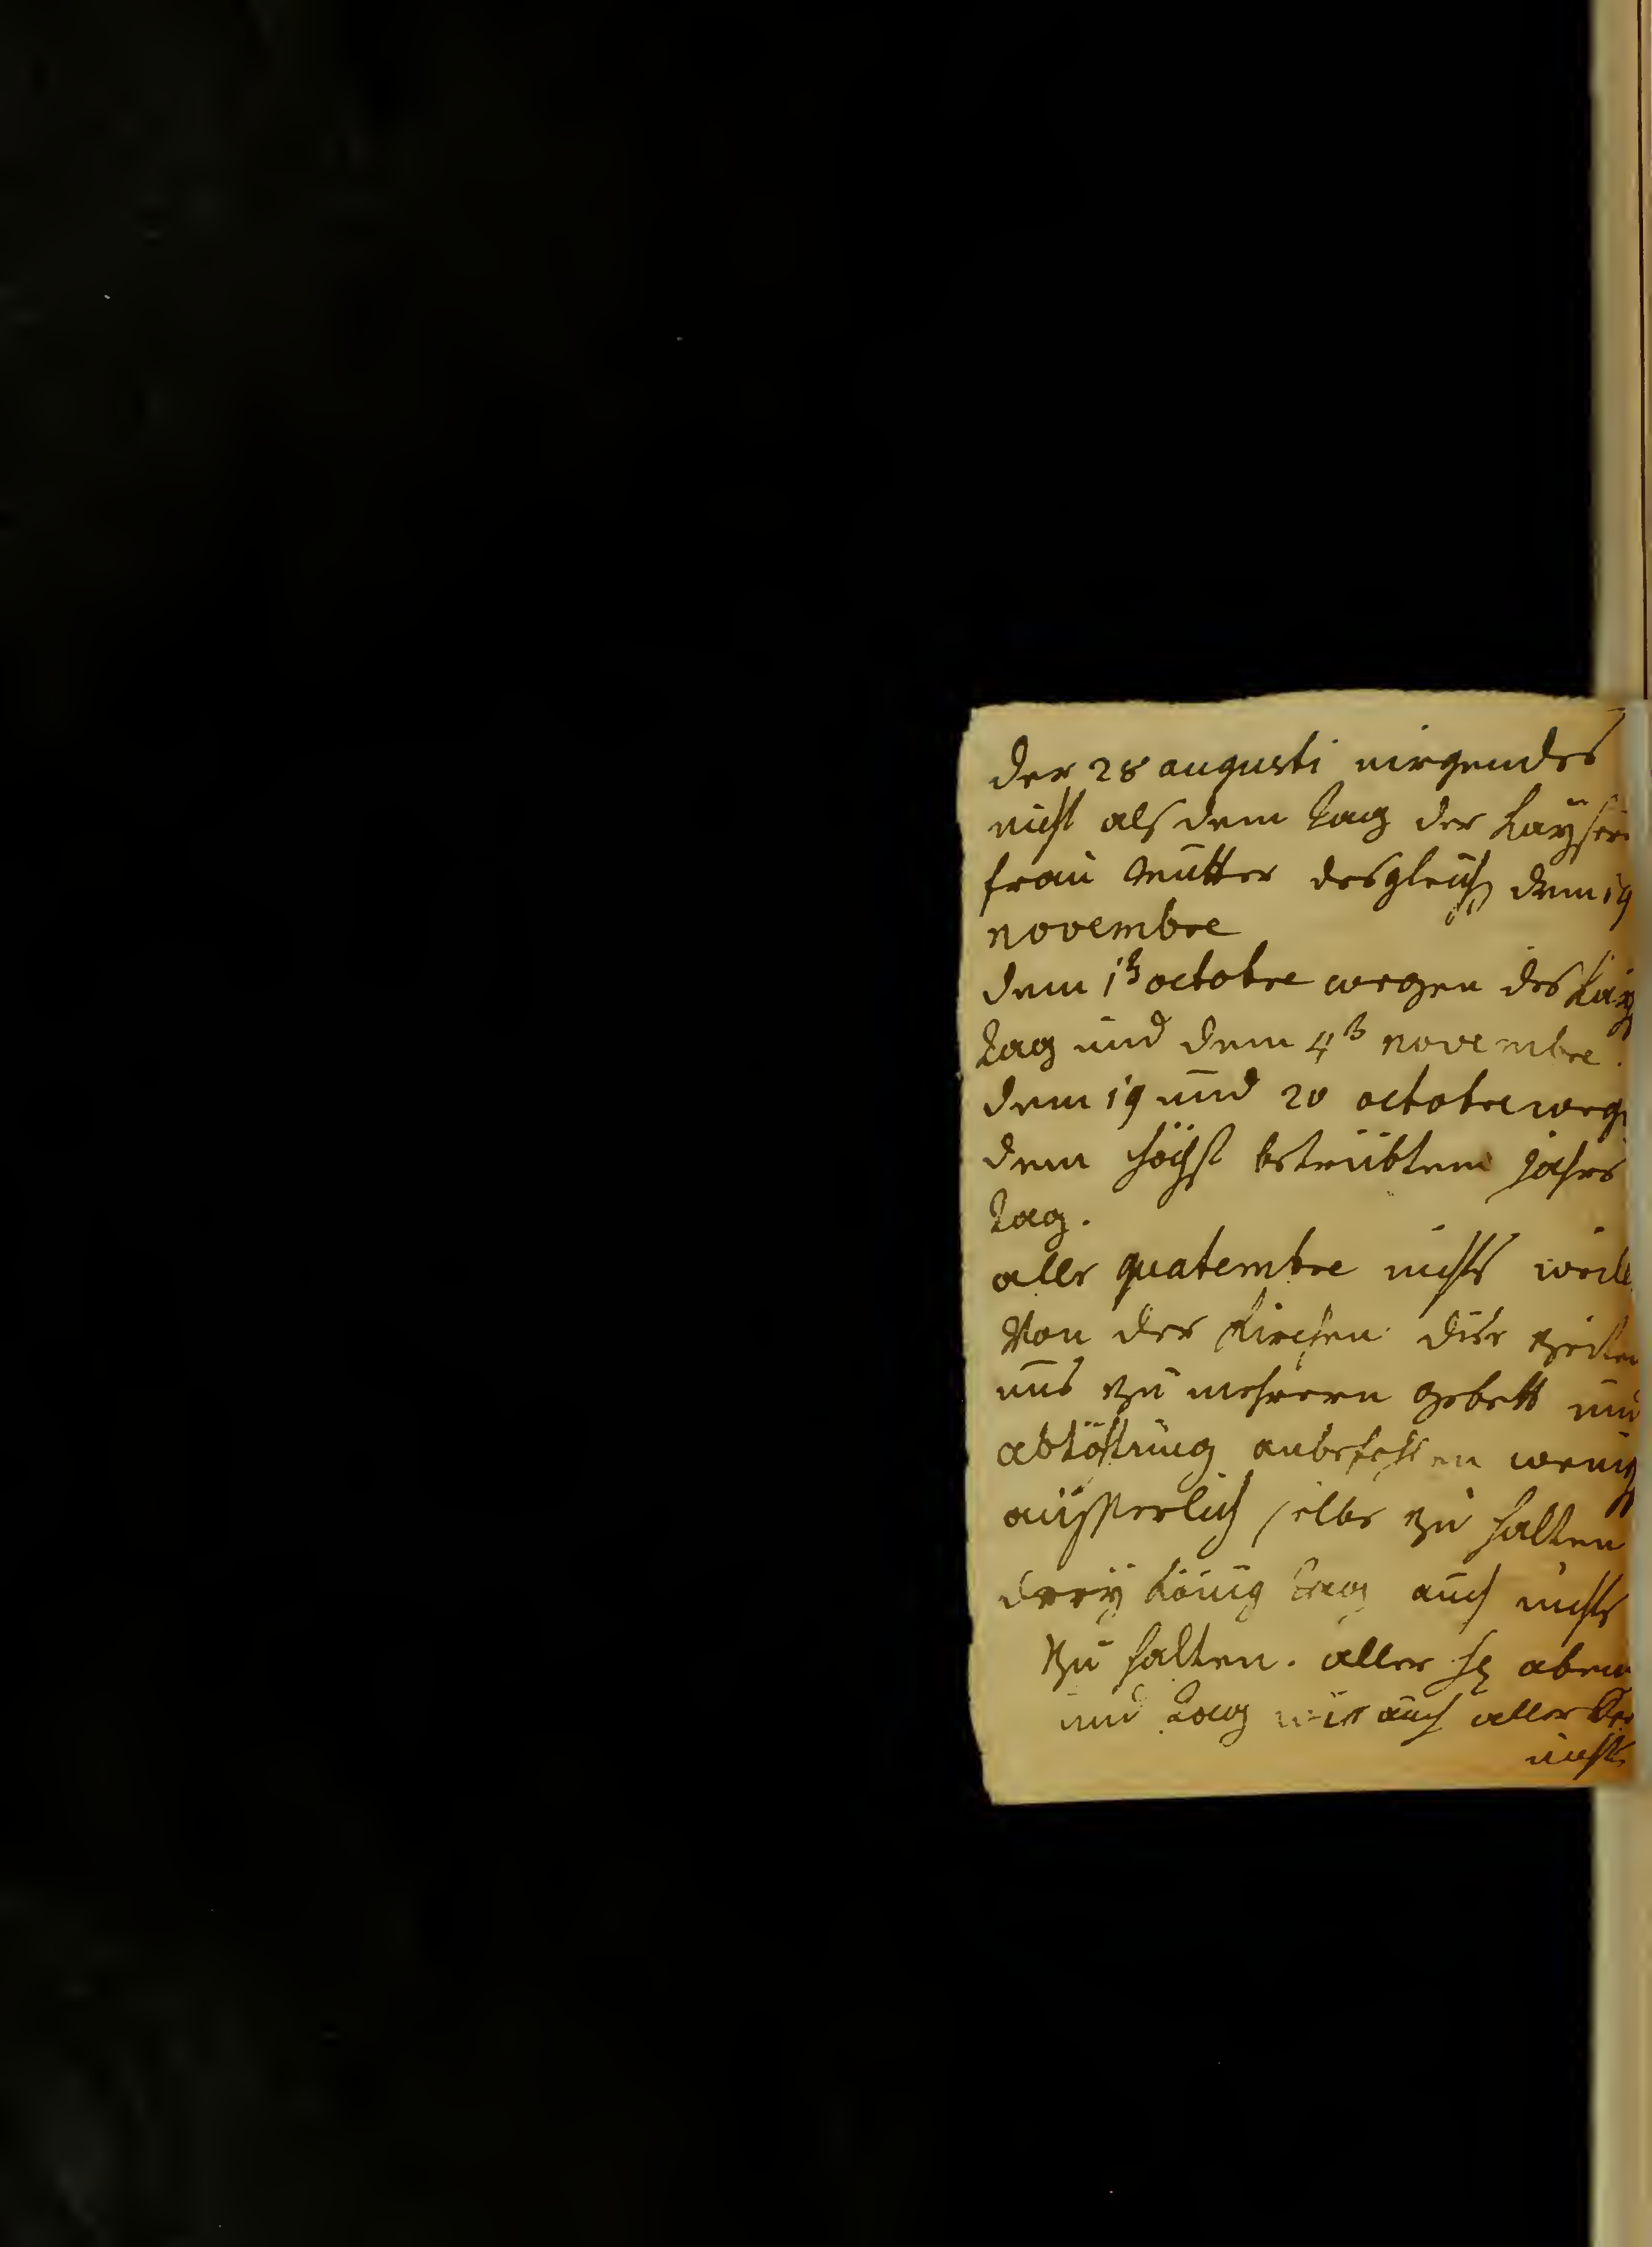 der 28 augusti nirgendes
nicht als dem tag der kayserin
frau mutter desgleichen dem 19
novembre
dem 1ts octobre wegen des kay
tag und dem 4ts novembre.
dem 19 und 20 octobre weg
dem höchst betrübten jahrs
tag.
alle quatembre nichts weill
von der kirchen dise zeiten
uns zu mehrern gebett und
abtöttung anbefohlen wenig
äusserlich selbe zu halten
drey könig tag auch nichts
zu halten. aller hl abend
und tag wie auch aller
nichts